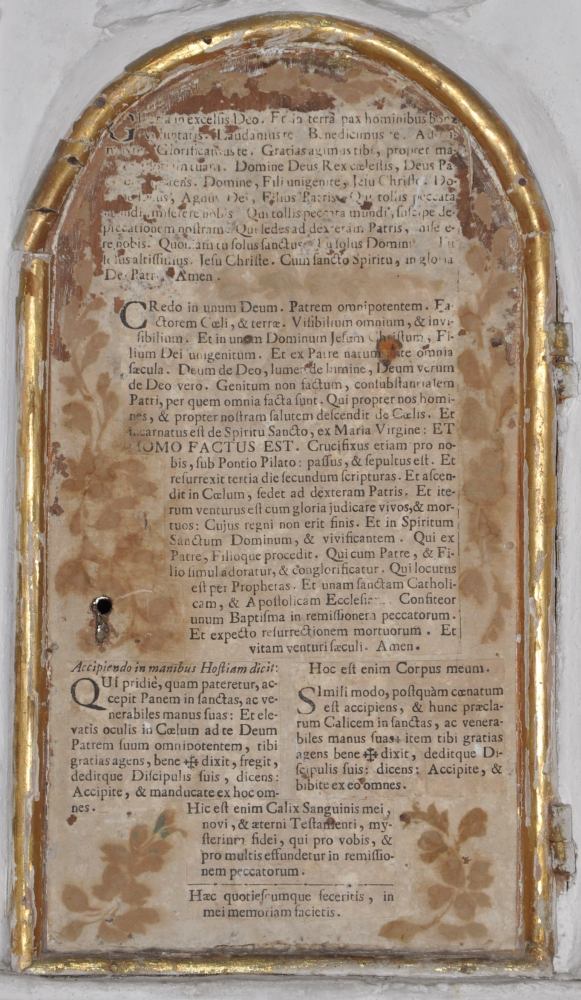 in excelsis Deo. Et in terra pax hominibus bonæ
Laudamus te Benedicimus te. Ad
Glorificamus te. Gratias agimus tibi, propter ma-
tuam. Domine Deus Rex cœlestis, Deus Pa
Domine, Fili unigenite, Jesu Christe. Do-
Agnus Dei, Filius Patris. Qui tollis peccata
mundi, miserere nobis Qui tollis peccata mundi, suscipe de-
precationem nostram. Qui sedes ad dexteram Patris, mise e-
re nobis. Quoniam tu solus sanctus. Tu solus Dominu Tu
solus altissimus. Jesu Christe. Cum sancto Spiritu, in gloria
Dei Patris Amen.
CRedo in unum Deum. Patrem omnipotentem. Fa-
ctorem Cœli, & terræ. Visibilium omnium, & invi-
sibilium. Et in unum Dominum Jesum Christum, Fi-
lium Dei unigenitum. Et ex Patre natum ante omnia
sæcula. Deum de Deo, lumen de lumine, Deum verum
de Deo vero. Genitum non factum, consubstantialem
Patri, per quem omnia facta sunt. Qui propter nos homi-
nes, & propter nostram salutem descendit de Cœlis. Et
incarnatus est de Spiritu Sancto, ex Maria Virgine: ET
HOMO FACTUS EST. Crucifixus etiam pro no-
bis, sub Pontio Pilato: passus, & sepultus est. Et
resurrexit tertia die secundum scripturas. Et ascen-
dit in Cœlum, sedet ad dexteram Patris. Et ite-
rum venturus est cum gloria judicare vivos, & mor-
tuos: Cujus regni non erit finis. Et in Spiritum
Sanctum Dominum, & vivificantem. Qui ex
Patre, Filioque procedit. Qui cum Patre, & Fi-
lio simul adoratur, & conglorificatur. Qui locutus
est per Prophetas. Et unam sanctam Catholi-
cam, & Apostolicam Ecclesiam. Confiteor
unum Baptisma in remissionem peccatorum.
Et expecto resurrectionem mortuorum. Et
vitam venturi sæculi. Amen.
Accipiendo in manibus Hostiam dicit:
QUi pridiè, quam pateretur, ac-
cepit Panem in sanctas, ac ve-
nerabiles manus suas: Et ele-
vatis oculis in Cœlum ad te Deum
Patrem suum omnipotentem, tibi
gratias agens, bene ✠ dixit, fregit,
deditque Discipulis suis, dicens:
Accipite, & manducate ex hoc om-
nes.
Hoc est enim Corpus meum.
SImili modo, postquàm cœnatum
est accipiens, & hunc præcla-
rum Calicem in sanctas, ac venera-
biles manus suas: item tibi gratias
agens bene ✠ dixit, deditque Di-
scipulis suis: dicens: Accipite, &
bibite ex eo omnes.
Hic est enim Calix Sanguinis mei,
novi, & æterni Testamenti, my-
sterium fidei, qui pro vobis, &
pro multis effundetur in remissio-
nem peccatorum.
Hæc quotiescumque feceritis, in
mei memoriam facietis.